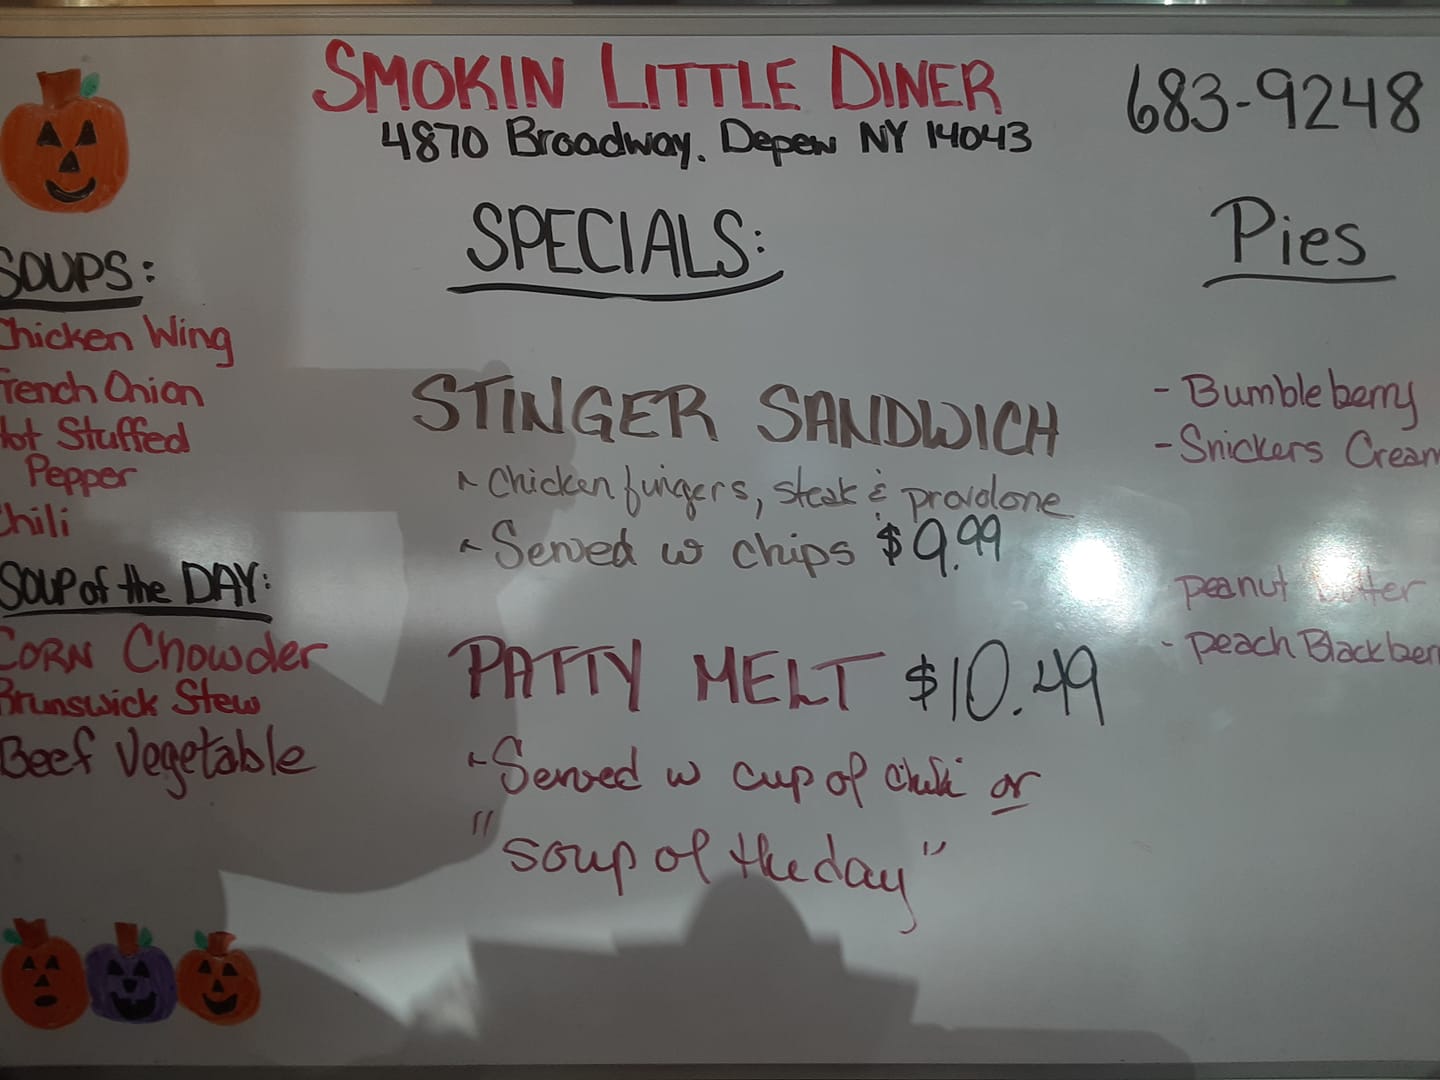 SMOKIN LITTLE DINER
4870 Broadway. Depew NY 14043
683-9248
SOUPS:
Chicken Wing
French Onion
Hot Stuffed
Pepper
Chili
SOUP of the DAY:
CORN Chowder
Brunswick Stew
Beef Vegetable
SPECIALS:
STINGER SANDWICH
- Chicken fingers, steak & provolone
- Served w chips $9.99
PATTY MELT $10.49
- Served w cup of chili or
"soup of the day"
Pies
- Bumbleberry
- Snickers Cream
peanut butter
- peach Blackberr